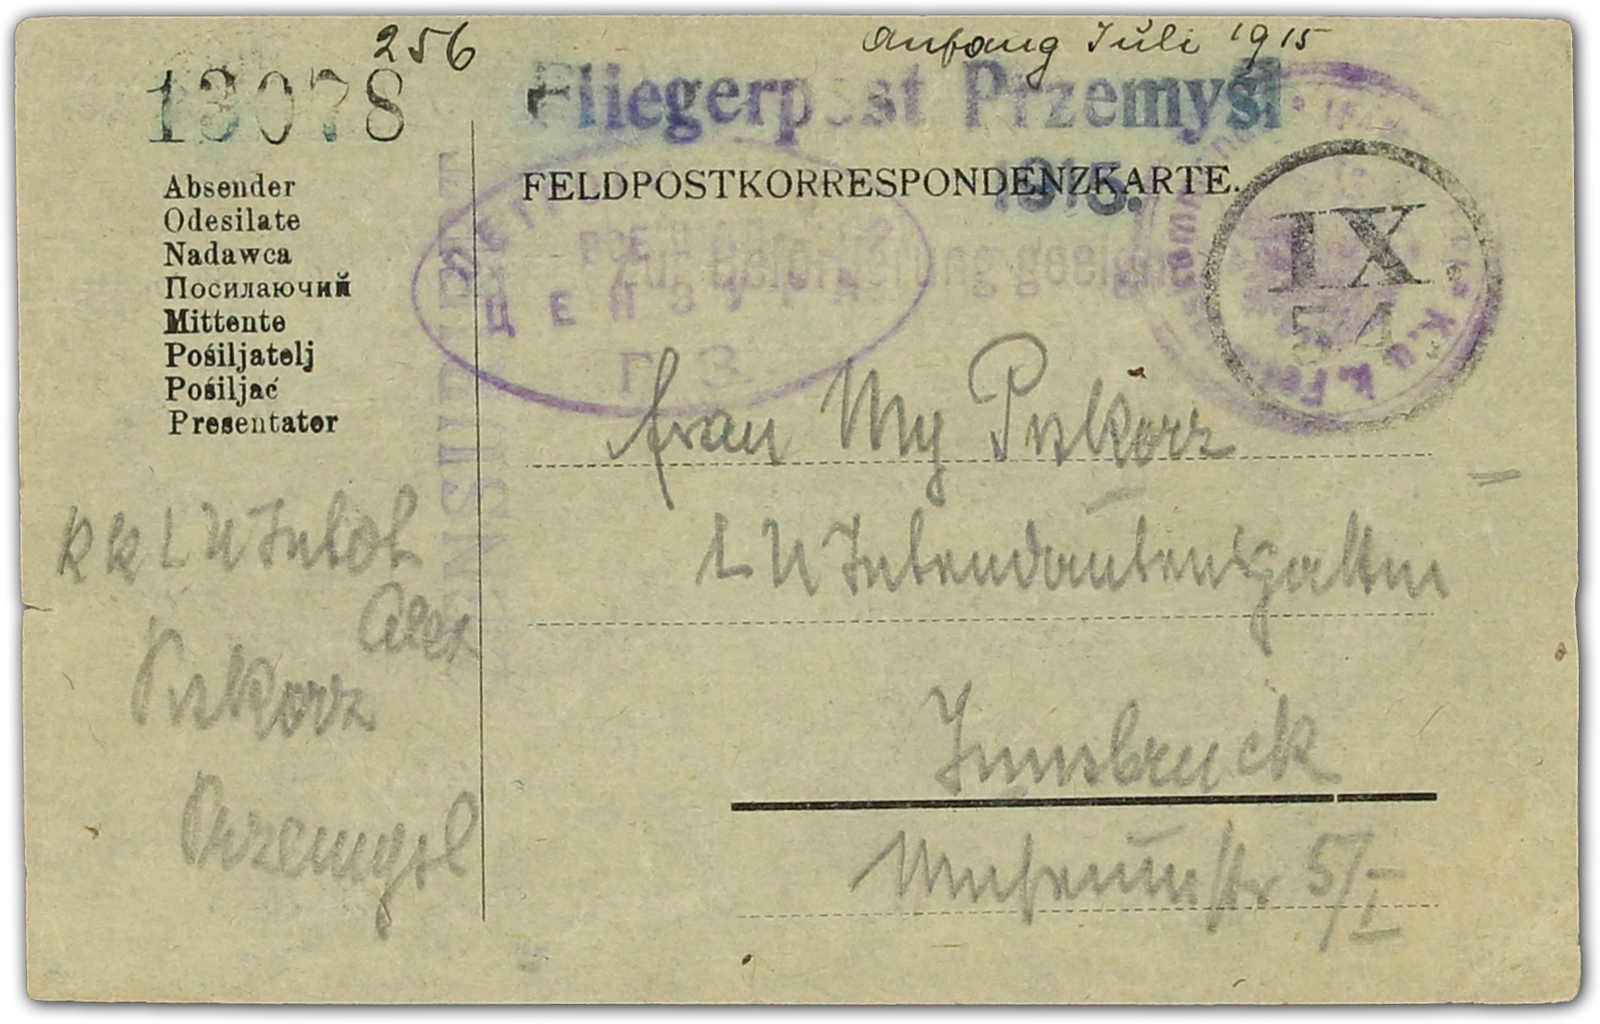 256
Anfang Juli 1915
13078
Fliegerpost Przemyśl
1915.
FELDPOSTKORRESPONDENZKARTE.
Absender
Odesilate
Nadawca
Посилаючий
Mittente
Pošiljatelj
Pošiljač
Presentator
Zur Beförderung geeignet
ЦЕНЗУРА
Г. З.
ZENSURIERT
IX
54
K. u. k.
Frau My Piskorz
LU Intendantensgattin
Innsbruck
Museumstr 5/I
k k LU Intdt
Alex
Piskorz
Przemysl